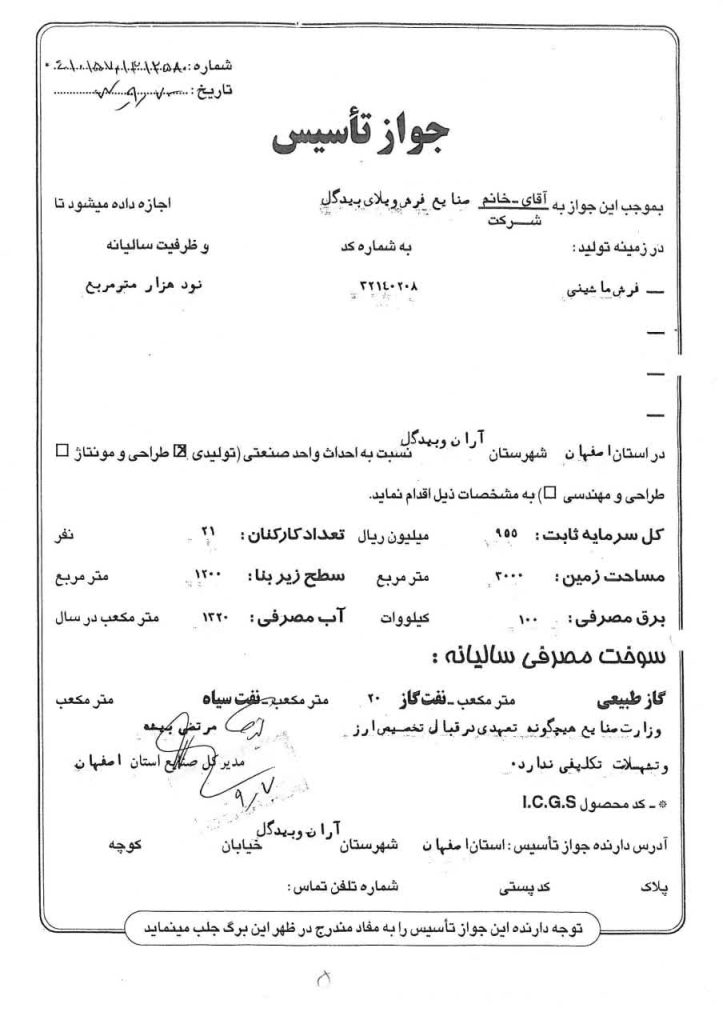 شماره :
تاریخ :
جواز تأسیس
بموجب این جواز به آقای-خانم شرکت صنایع فرش ویلای بیدگل اجازه داده میشود تا
در زمینه تولید : به شماره کد و ظرفیت سالیانه
— فرش ماشینی ۳۲۱۴۰۲۰۸ نود هزار مترمربع
—
—
—
در استان اصفهان شهرستان آران وبیدگل نسبت به احداث واحد صنعتی (تولیدی ☒ طراحی و مونتاژ ☐
طراحی و مهندسی ☐) به مشخصات ذیل اقدام نماید.
کل سرمایه ثابت : ۹۵۵ میلیون ریال تعداد کارکنان : ۲۱ نفر
مساحت زمین : ۳۰۰۰ متر مربع سطح زیر بنا : ۱۲۰۰ متر مربع
برق مصرفی : ۱۰۰ کیلووات آب مصرفی : ۱۳۲۰ متر مکعب در سال
سوخت مصرفی سالیانه :
گاز طبیعی متر مکعب - نفت گاز ۲۰ متر مکعب - نفت سیاه متر مکعب
وزارت صنایع هیچگونه تعهدی درقبال تخصیص ارز
وتسهیلات تکلیفی ندارد۰
مرتضی
مدیر کل صنایع استان اصفهان
۹/۷
* - کد محصول I.C.G.S
آدرس دارنده جواز تأسیس : استان اصفهان شهرستان آران وبیدگل خیابان کوچه
پلاک کد پستی شماره تلفن تماس :
توجه دارنده این جواز تأسیس را به مفاد مندرج در ظهر این برگ جلب مینماید